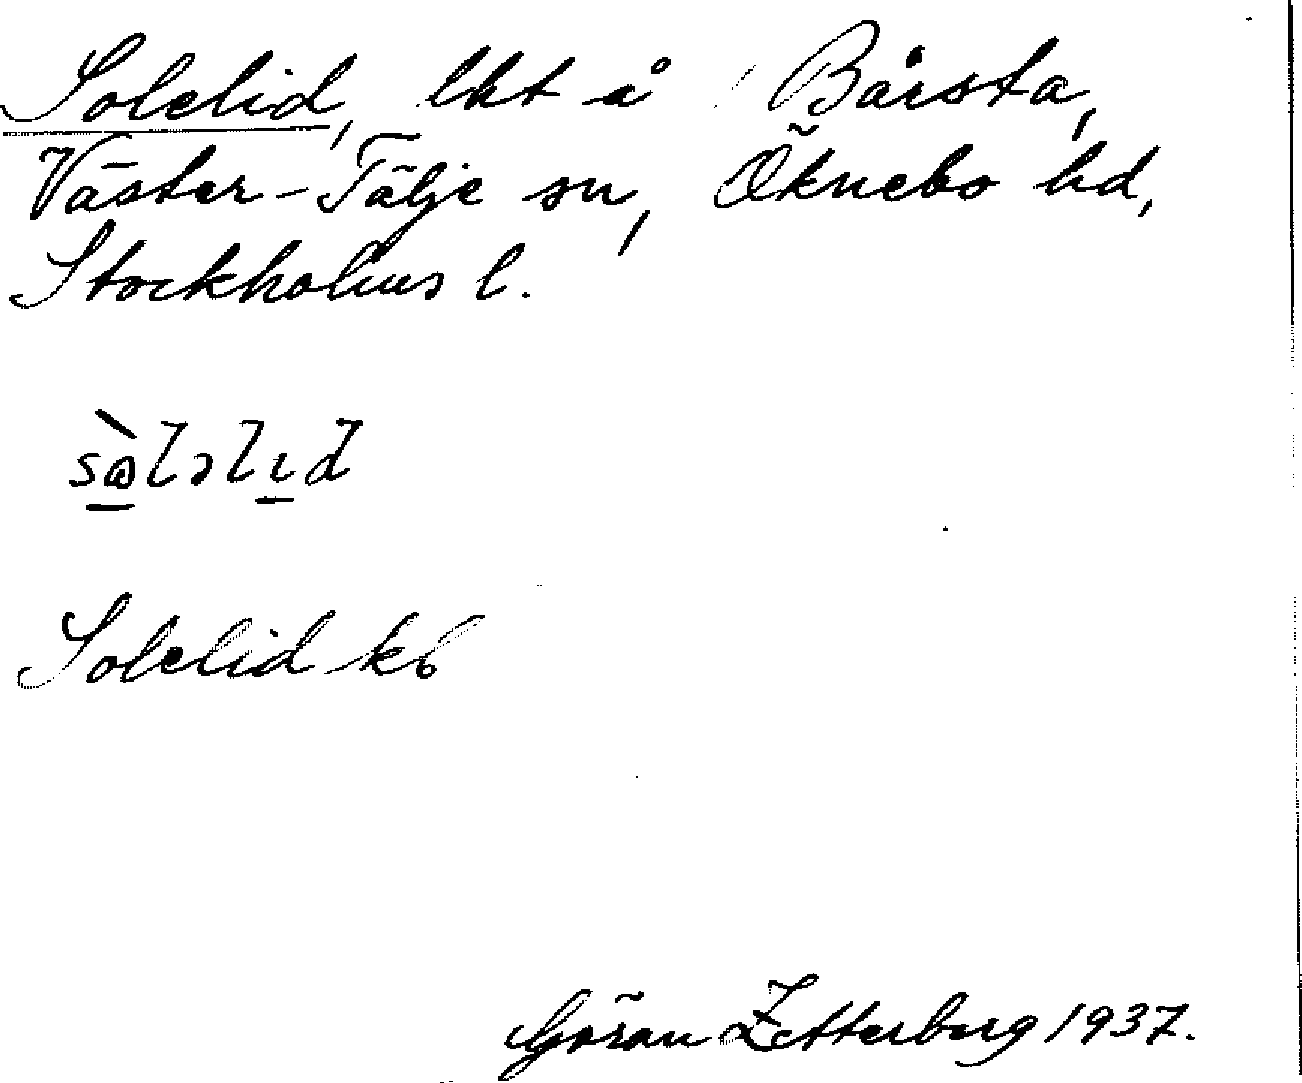 Solelid, lht å Bårsta,
Väster-Tälje sn, Öknebo hd,
Stockholms l.
sòlɘlɩd
Solelid kb
Göran Zetterberg 1937.